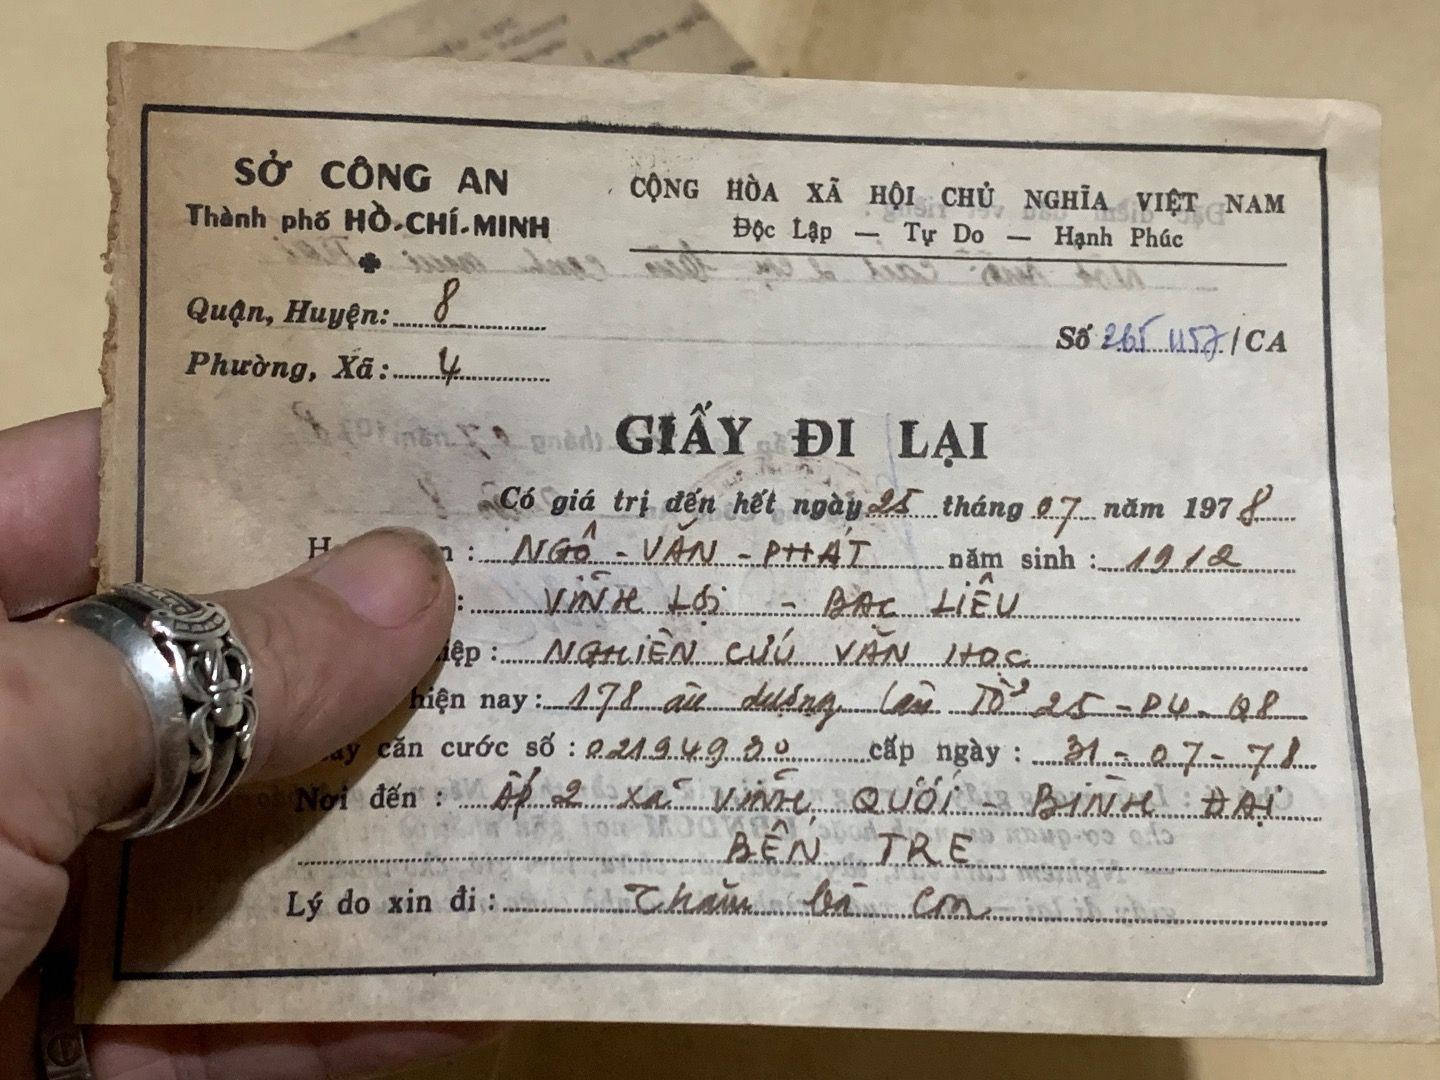 SỞ CÔNG AN
Thành phố HỒ-CHÍ-MINH
CỘNG HÒA XÃ HỘI CHỦ NGHĨA VIỆT NAM
Độc Lập — Tự Do — Hạnh Phúc
Quận, Huyện: 8
Phường, Xã: 4
Số 265 1157/CA
GIẤY ĐI LẠI
Có giá trị đến hết ngày 25 tháng 07 năm 1978
H n : NGÔ - VĂN - PHÁT năm sinh : 1912
: VĨNH LỢI - BẠC LIÊU
iệp : NGHIÊN CỨU VĂN HỌC
hiện nay : 178 âu dương lân Tổ 25 - P4 - Q8
ấy căn cước số : 021949930 cấp ngày : 31-07-78
Nơi đến : Ấp 2 xã VĨNH QUỚI - BÌNH ĐẠI
BẾN TRE
Lý do xin đi : Thăm bà con